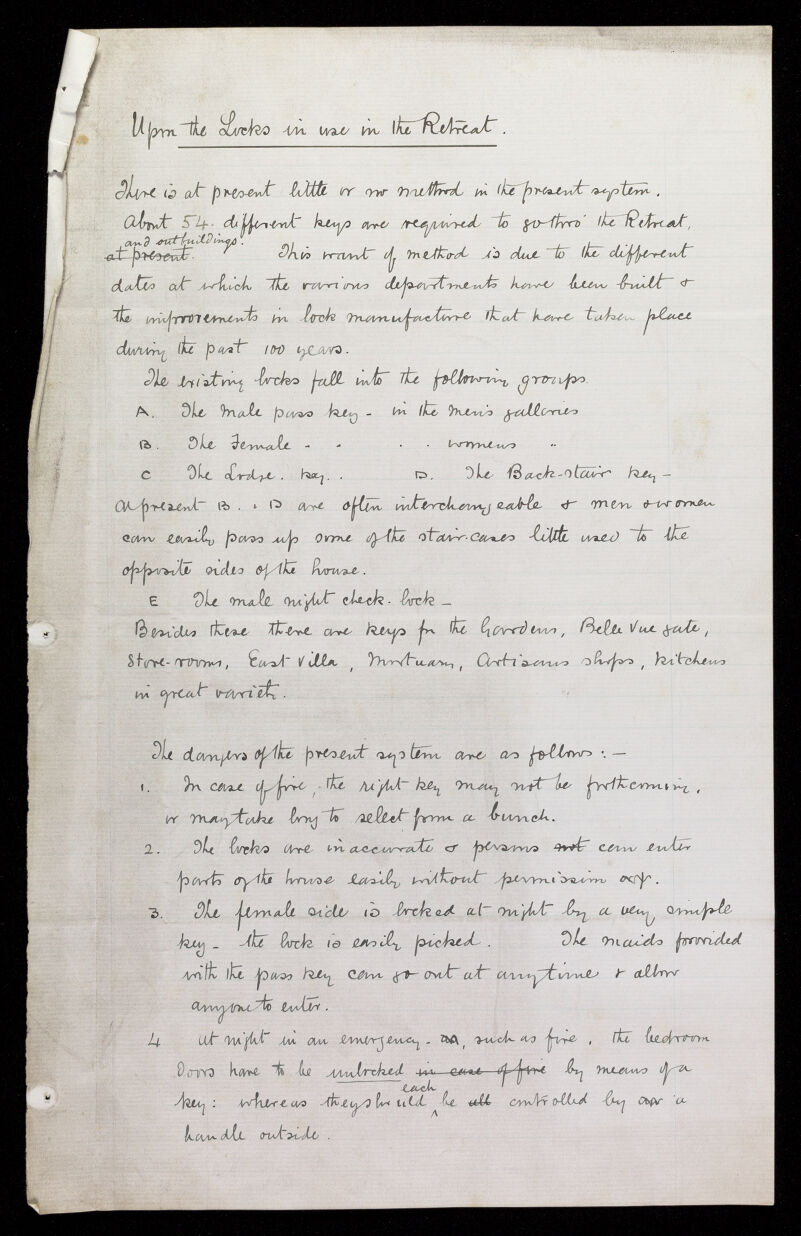 Upon the Locks in use in the Retreat.
There is at present little or no method in the present system.
About 54. different keys are required to go thro' the Retreat,
and outbuildings.
at present. This want of method is due to the different
dates at which the various departments have been built &
the improvements in lock manufacture that have taken place
during the past 100 years.
The existing locks fall into the following groups
A. The Male pass key - in the men's galleries
B. The Female - - . . womens "
C The Lodge. key. . D. The Back-stair key -
At present B. . D are often interchangeable & men & women
can easily pass up some of the stair-cases little used to the
opposite sides of the house.
E The male night check-lock -
Besides these there are keys for the Gardens, Belle Vue gate,
Store-rooms, East Villa, Mortuary, Artisans shops, kitchens
in great variety.
The dangers of the present system are as follows : -
1. In case of fire, the right key may not be forthcoming,
or may take long to select from a bunch.
2. The locks are inaccurate & persons not can enter
parts of the house easily without permission.
3. The female side is locked at night by a very simple
key - the lock is easily picked. The maids provided
with the pass key can go out at anytime & allow
anyone to enter.
4 At night in an emergency - as, such as fire, the bedroom
doors have to be unlocked in case of fire by means of a
each
key: whereas they should be all controlled by a
handle outside.